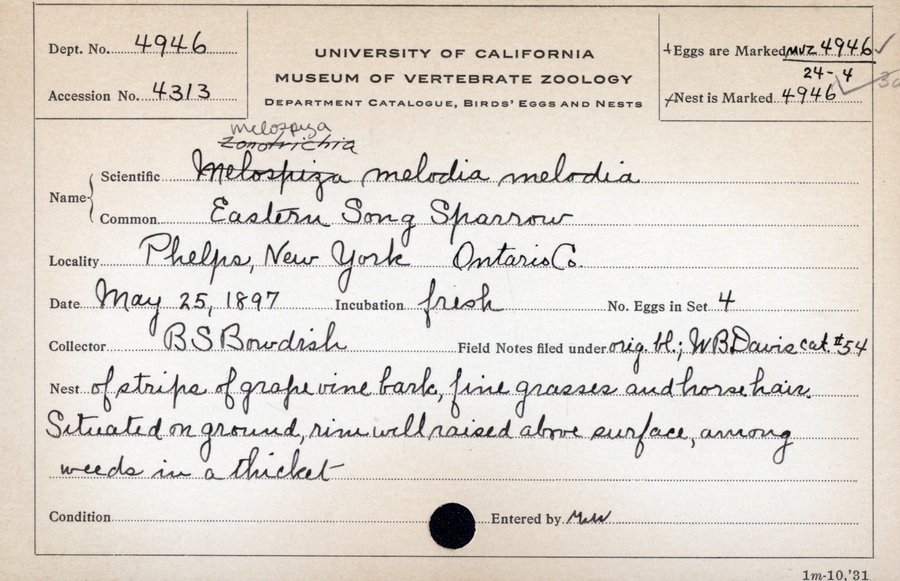 Dept. No. 4946
Accession No. 4313
UNIVERSITY OF CALIFORNIA
MUSEUM OF VERTEBRATE ZOOLOGY
DEPARTMENT CATALOGUE, BIRDS' EGGS AND NESTS
Eggs are Marked MVZ 4946
24-4
Nest is Marked 4946
melospiza
zonotrichia
Name
Scientific Melospiza melodia melodia
Common Eastern Song Sparrow
Locality Phelps, New York Ontario Co.
Date May 25, 1897 Incubation fresh No. Eggs in Set 4
Collector B S Bowdish Field Notes filed under orig. bl.; W B Davis cat. #54
Nest of strips of grape vine bark, fine grasses and horse hair.
Situated on ground, rim well raised above surface, among
weeds in a thicket
Condition Entered by
1m-10,'31